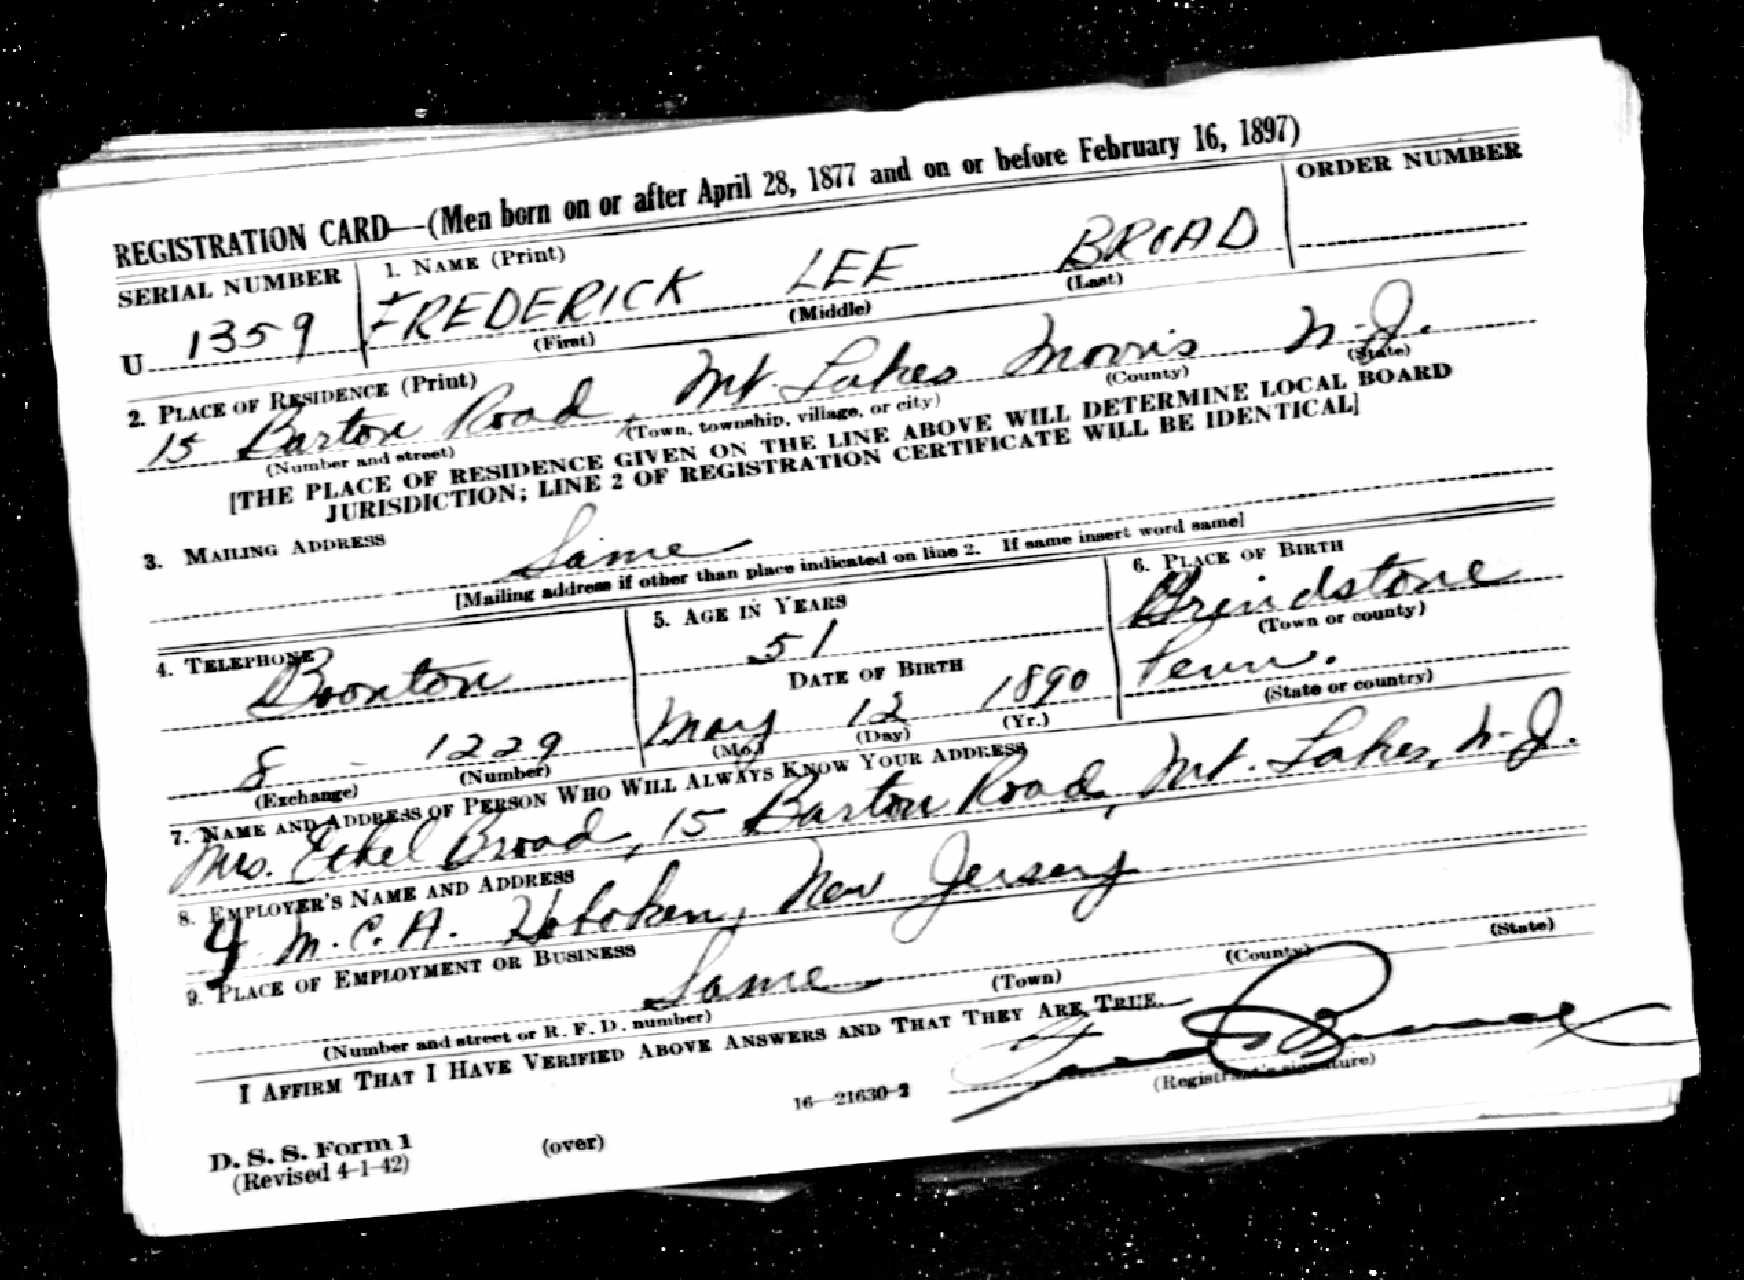 REGISTRATION CARD—(Men born on or after April 28, 1877 and on or before February 16, 1897)
SERIAL NUMBER
1. NAME (Print)
ORDER NUMBER
U 1359
FREDERICK LEE BROAD
(First) (Middle) (Last)
2. PLACE OF RESIDENCE (Print)
15 Barton Road, Mt. Lakes Morris N.J.
(Number and street) (Town, township, village, or city) (County) (State)
[THE PLACE OF RESIDENCE GIVEN ON THE LINE ABOVE WILL DETERMINE LOCAL BOARD
JURISDICTION; LINE 2 OF REGISTRATION CERTIFICATE WILL BE IDENTICAL]
3. MAILING ADDRESS
Same
[Mailing address if other than place indicated on line 2. If same insert word same]
4. TELEPHONE
Boonton
8 - 1229
(Exchange) (Number)
5. AGE IN YEARS
51
DATE OF BIRTH
May 12 1890
(Mo.) (Day) (Yr.)
6. PLACE OF BIRTH
Grindstone
(Town or county)
Penn.
(State or country)
7. NAME AND ADDRESS OF PERSON WHO WILL ALWAYS KNOW YOUR ADDRESS
Mrs. Ethel Broad, 15 Barton Road, Mt. Lakes, N.J.
8. EMPLOYER'S NAME AND ADDRESS
Y M.C.A. Hoboken, New Jersey
9. PLACE OF EMPLOYMENT OR BUSINESS
Same
(Number and street or R. F. D. number) (Town) (County) (State)
I AFFIRM THAT I HAVE VERIFIED ABOVE ANSWERS AND THAT THEY ARE TRUE.
D. S. S. Form 1
(Revised 4-1-42)
(over)
16—21630-2
(Registrant's signature)